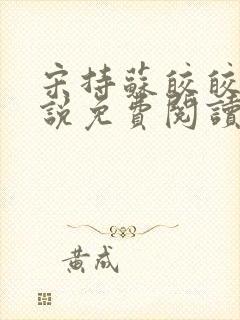 宋持蘇皎皎
說免費閱讀
黃成